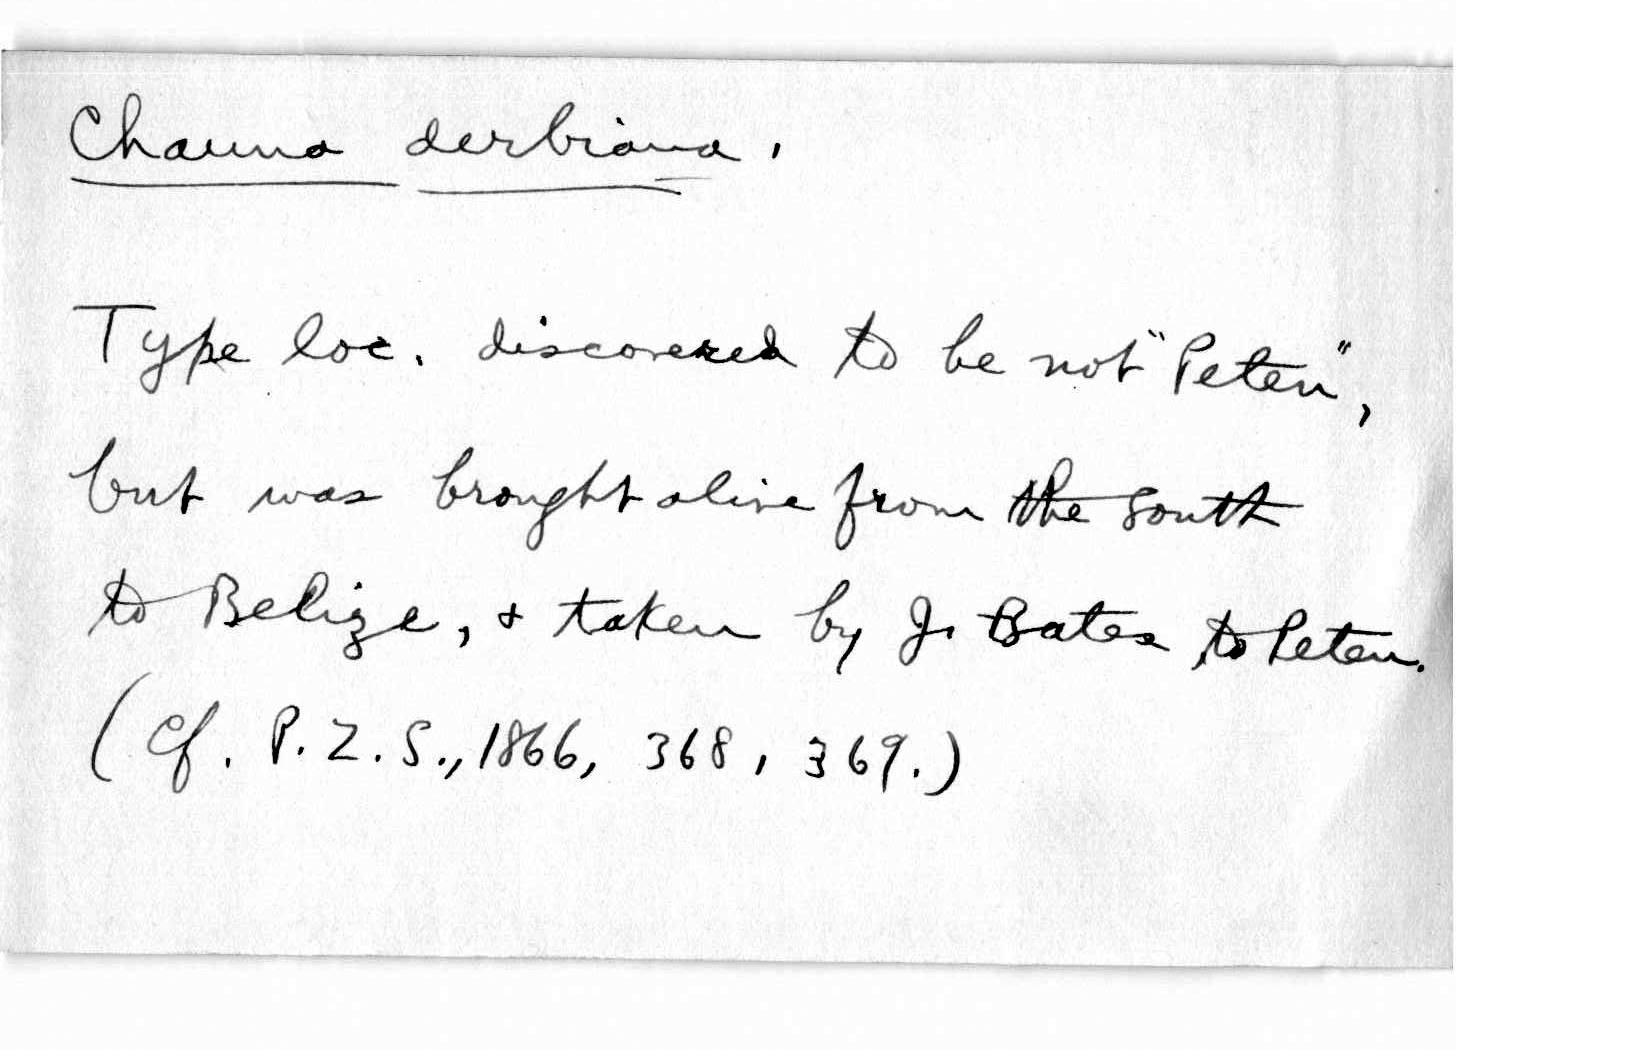 Chauna derbiana.
Type loc. discovered to be not "Peten",
but was brought alive from the South
to Belize, & taken by J. Bates to Peten.
(Cf. P.Z.S., 1866, 368, 369.)